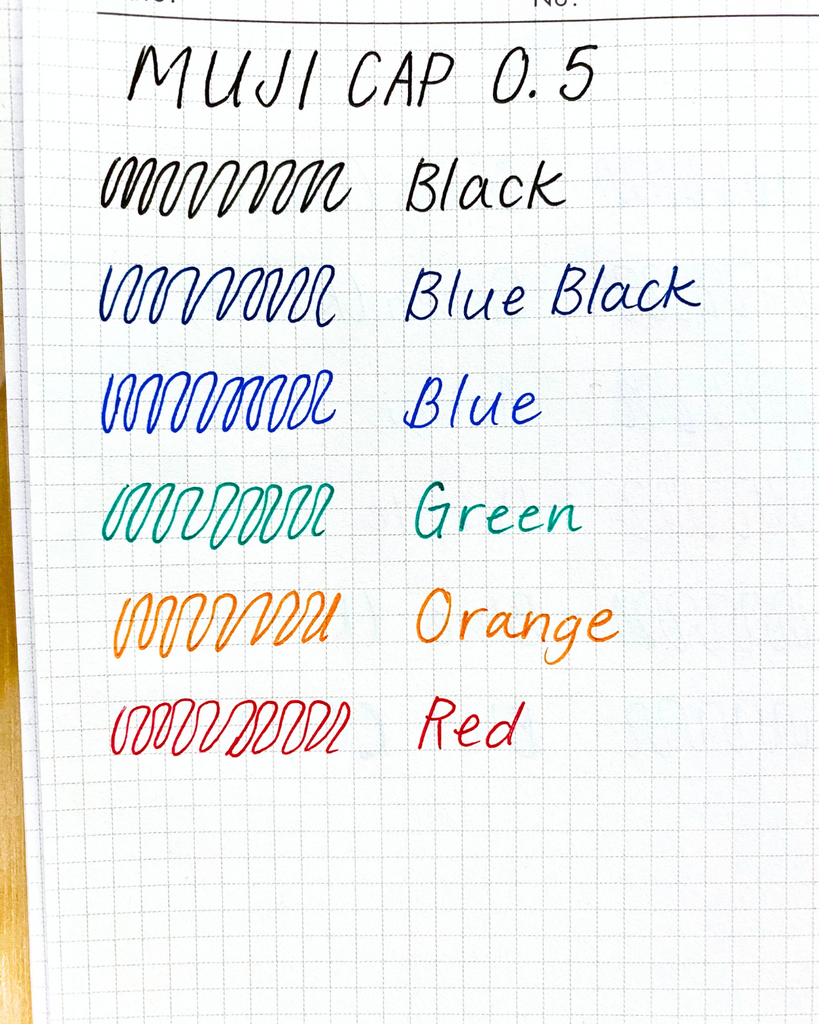 MUJI CAP 0.5
Black
Blue Black
Blue
Green
Orange
Red